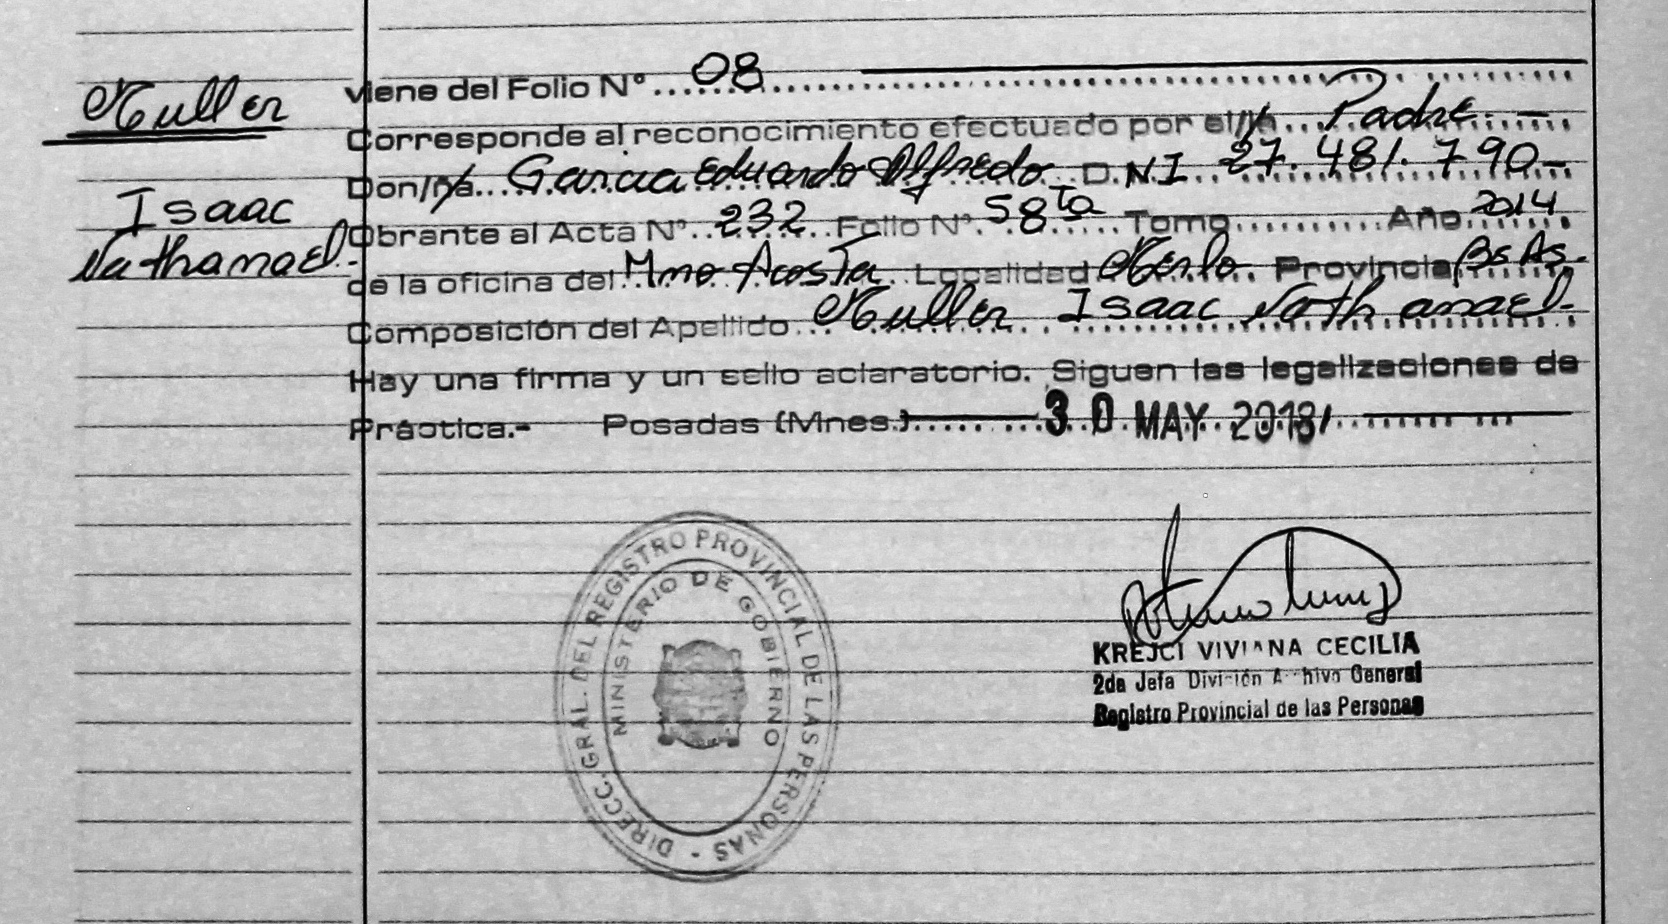 Muller
Isaac
Nathanael.-
viene del Folio Nº .... 08
Corresponde al reconocimiento efectuado por el/la .... Padre. -
Don/ña... Garcia Eduardo Alfredo . D.NI 27.481.790-
Obrante al Acta Nº. 232. Folio Nº. 58 Tomo.......... Año 2014.
de la oficina del Mno Acosta. Localidad Merlo. Provincia Bs As.
Composición del Apellido... Muller Isaac Nathanael.-
Hay una firma y un sello aclaratorio. Siguen las legalizaciones de
Práctica.- Posadas (Mnes.) 30 MAY 2018
DIRECC. GRAL. DEL REGISTRO PROVINCIAL DE LAS PERSONAS -
MINISTERIO DE GOBIERNO
KREJCI VIVIANA CECILIA
2da Jefa División Archivo General
Registro Provincial de las Personas